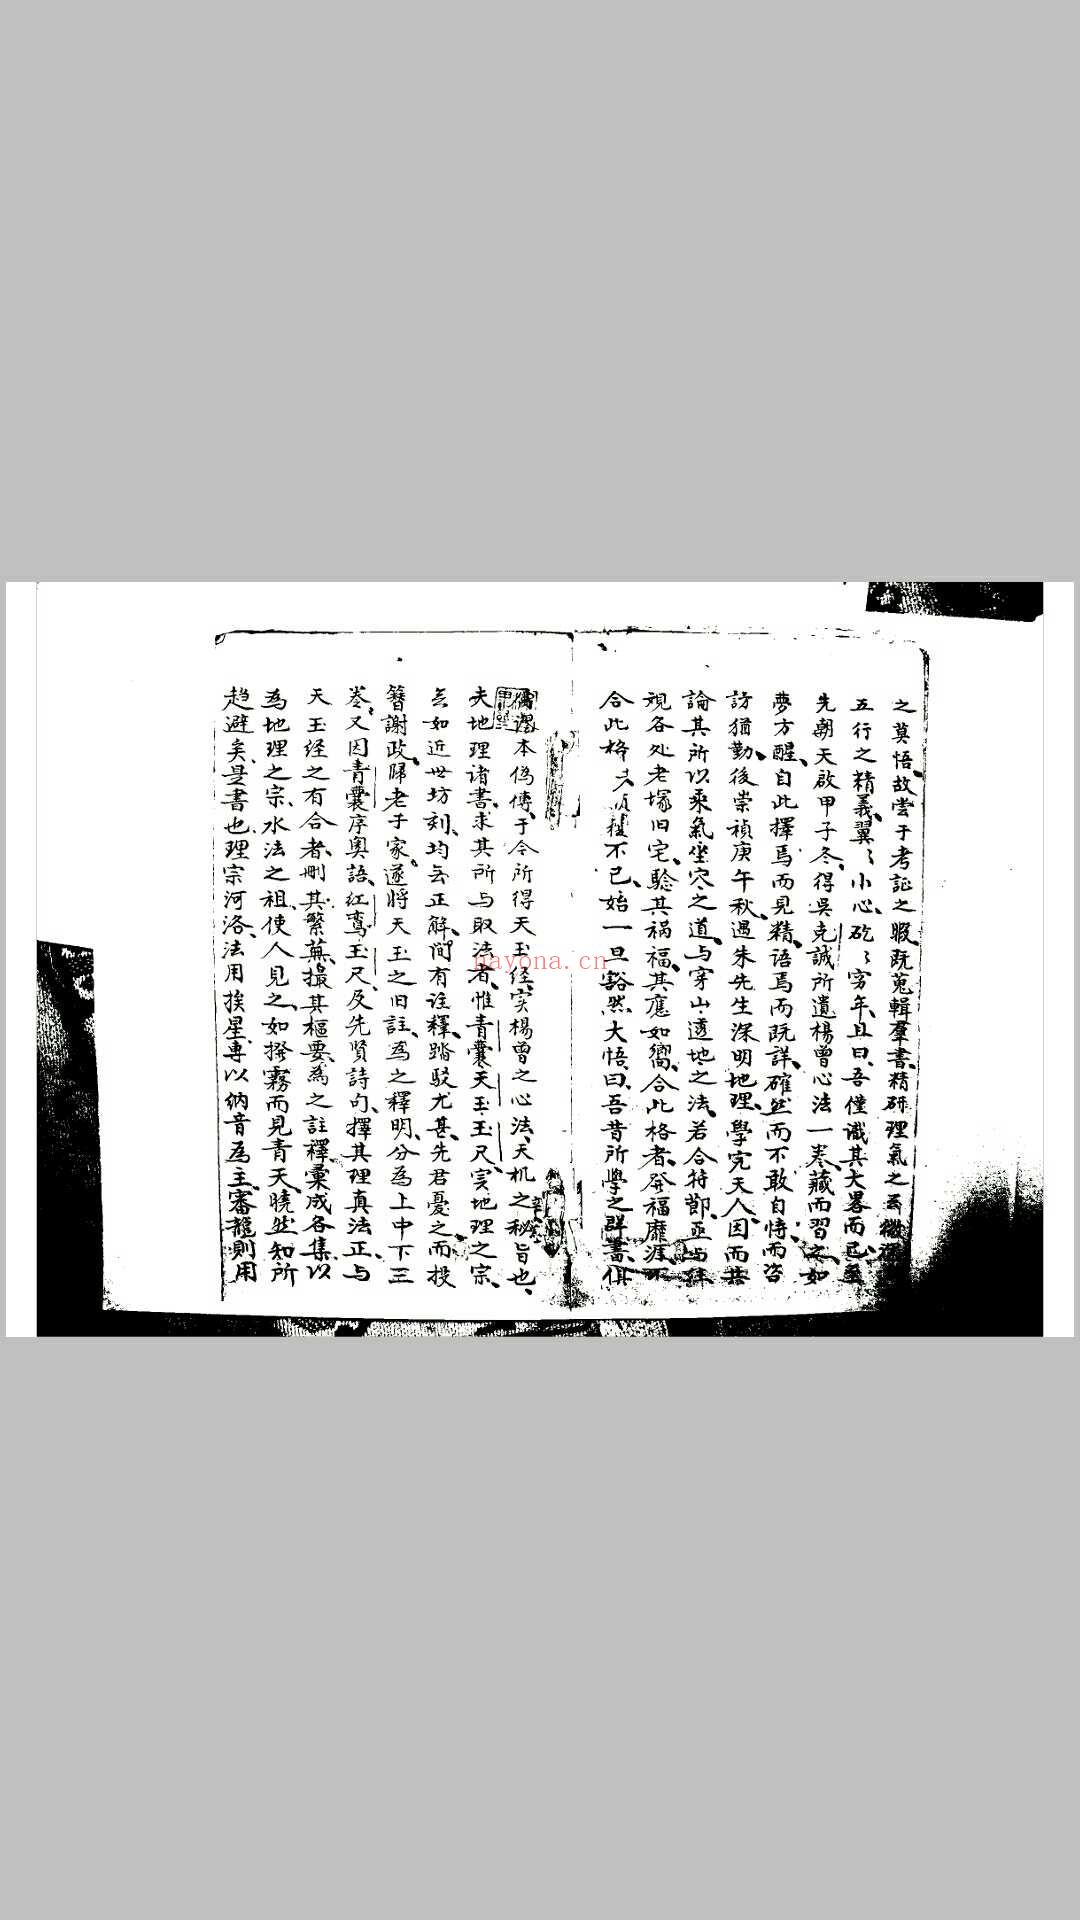 之莫悟、故嘗于考証之暇、既蒐輯羣書、精研理氣之
五行之精義、翼〻小心、矻〻窮年、且曰、吾僅識其大畧而已、至
先朝天啟甲子冬、得吳克誠所遺楊曾心法一卷、藏而習之、如
夢方醒、自此擇焉而見精、語焉而既詳、確然而不敢自恃、而咨
訪猶勤、後崇禎庚午秋、遇朱先生深明地理、學究天人、因而共
論其所以乘氣坐穴之道、与穿山透地之法、若合符節、亟与
覌各处老塚旧宅、驗其禍福、其應如嚮、合此格者、發福靡涯、不
合此格 不已、始一旦豁然大悟、曰、吾昔所學之群書、俱
本偽傳、于今所得天玉经、实楊曾之心法、天机之秘旨也、
夫地理诸書、求其所与取法者、惟青囊天玉玉尺、寔地理之宗、
无如近世坊刻、均无正解、间有诠釋、踏駁尤甚、先君憂之、而投
簪謝政、歸老于家、遂将天玉之旧註、为之釋明、分为上中下三
卷、又因青囊序奧語、红鸾玉尺、及先贤詩句、擇其理真法正、与
天玉经之有合者、刪其繁蕪、撮其樞要、為之註釋、彙成各集、以
為地理之宗、水法之祖、使人見之、如撥霧而見青天、曉然知所
趋避矣、是書也、理宗河洛、法用挨星、専以纳音為主、審龍則用
nayona.cn